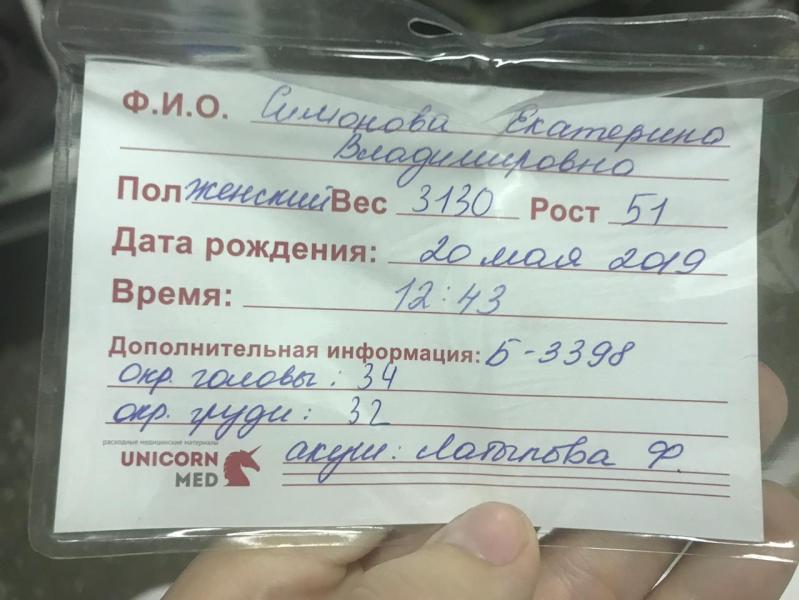 Ф.И.О. Симонова Екатерина
Владимировна
Пол женский Вес 3130 Рост 51
Дата рождения: 20 мая 2019
Время: 12:43
Дополнительная информация: Б-3398
окр. головы: 34
окр. груди: 32
расходные медицинские материалы
UNICORN
MED
акуш: Латыпова Ф.